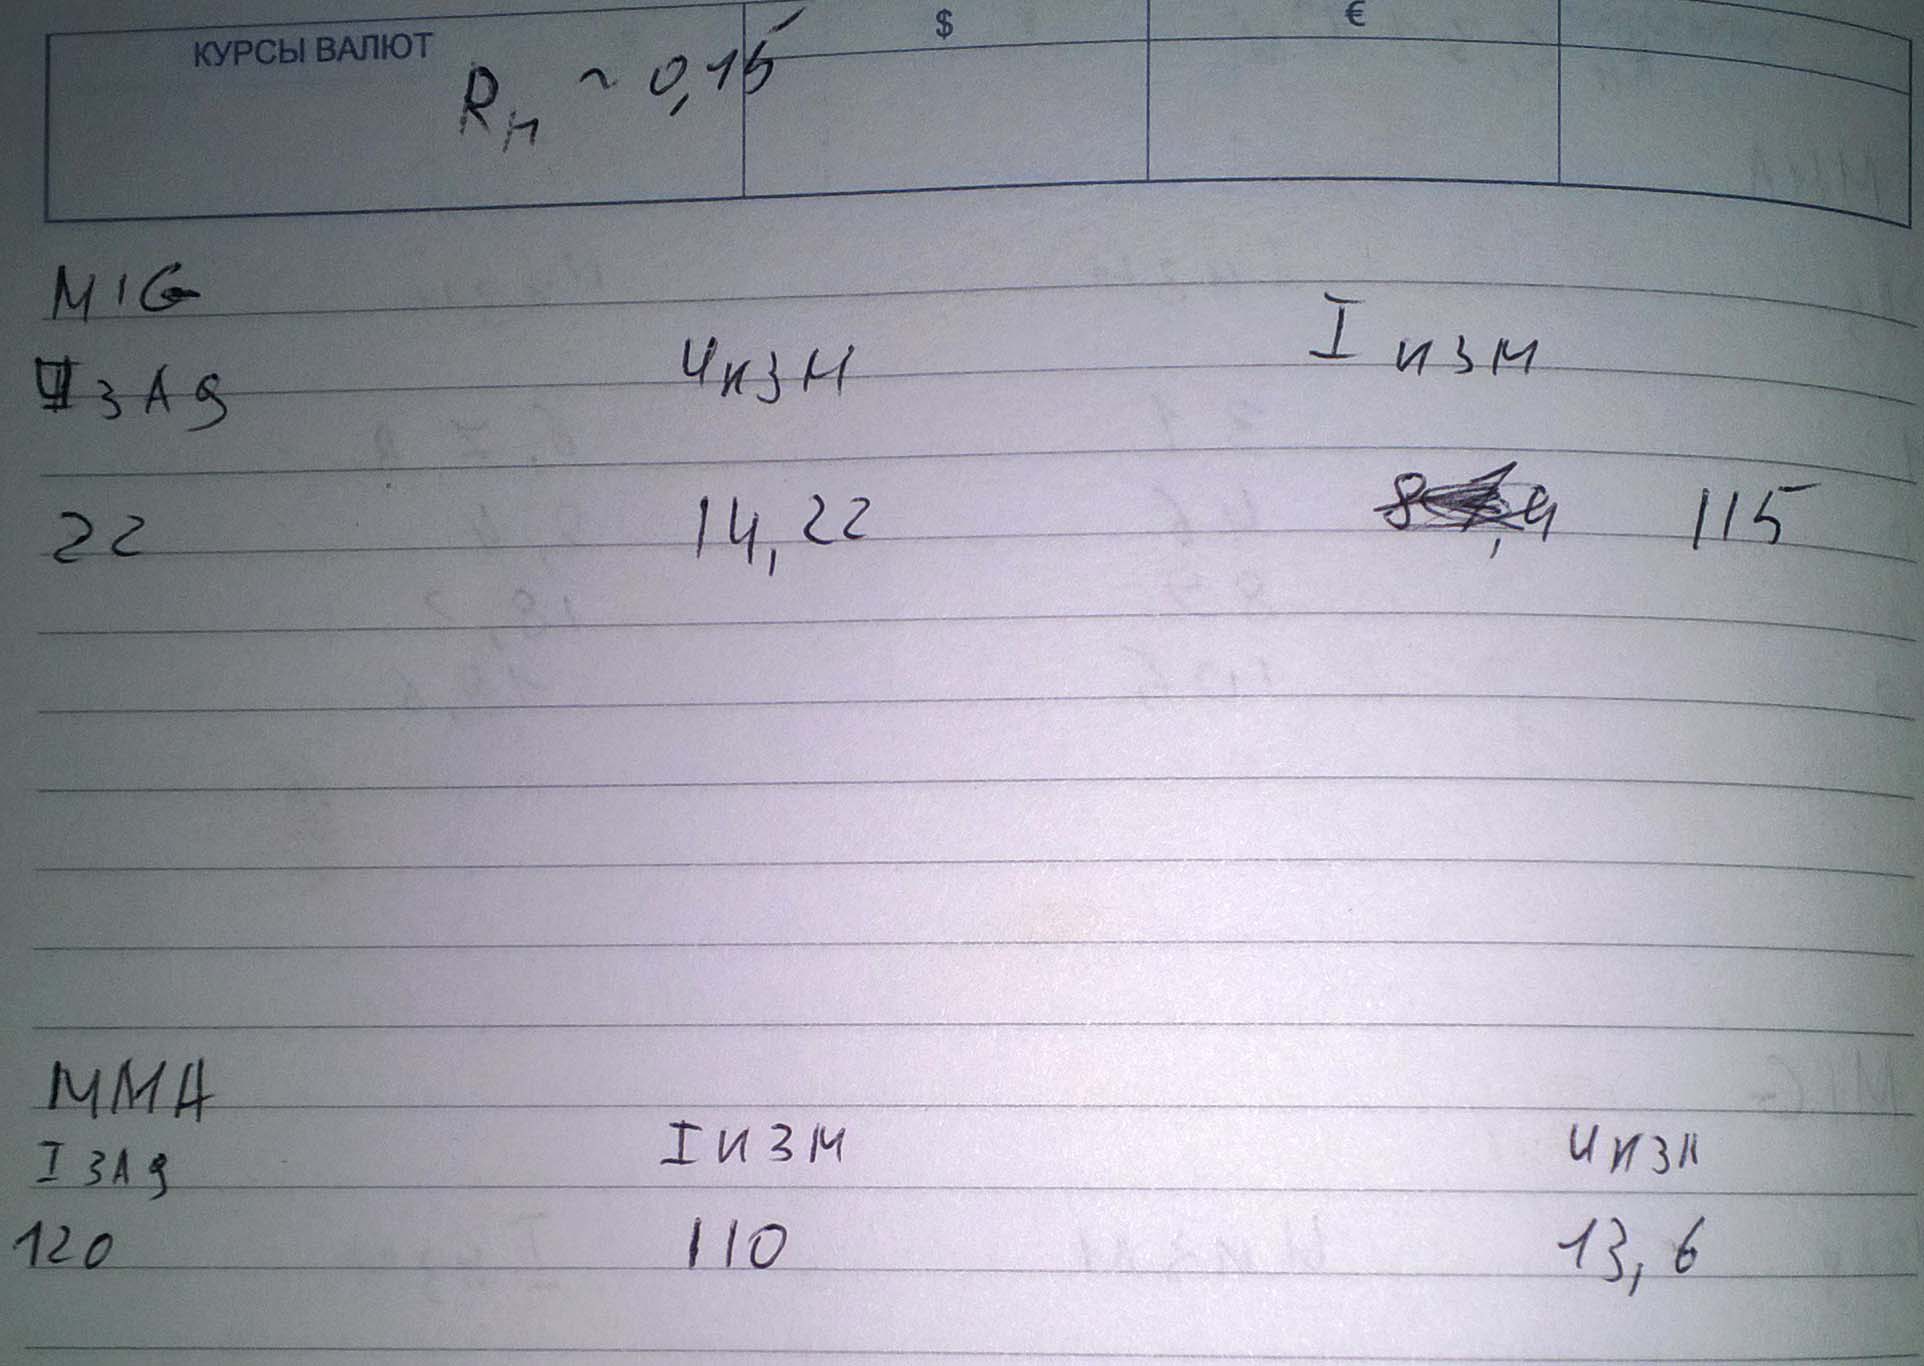 КУРСЫ ВАЛЮТ $ €
Rн ~ 0,15
MIG
Uзад Uизм Iизм
22 14,22 115
MMA
Iзад Iизм Uизм
120 110 13,6